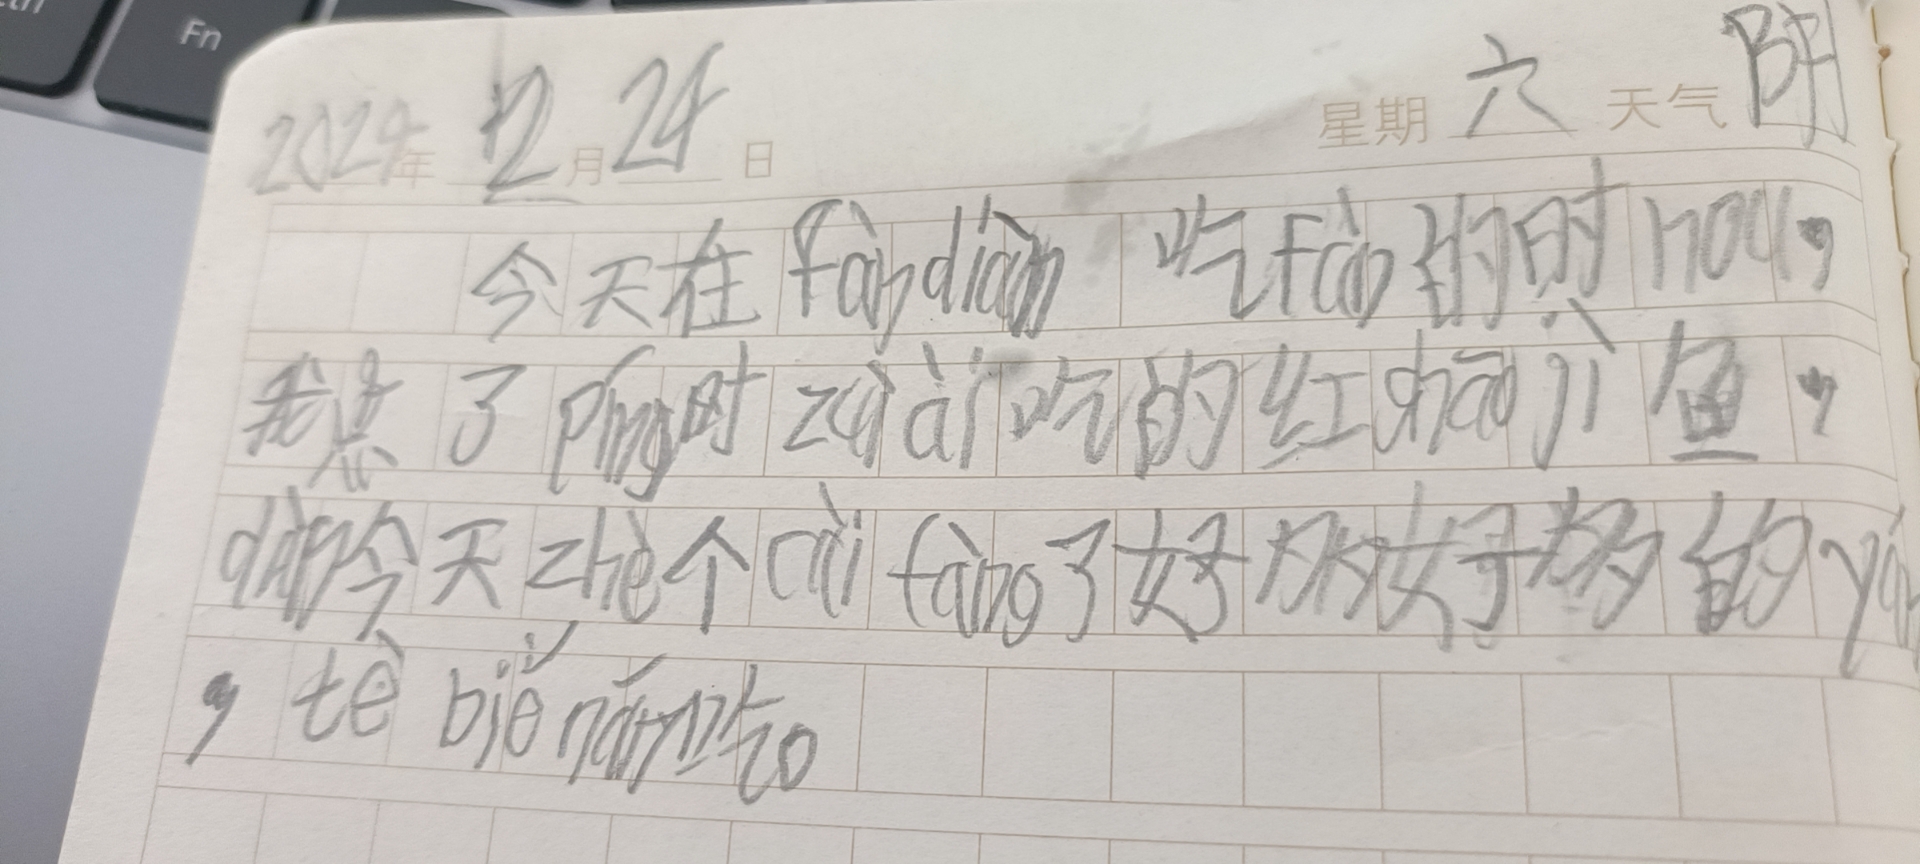 Fn
2024年 12月 24日 星期 六 天气 阴
今天在fàndiàn 吃fàn的时hou，
我点了píng时zuì ài吃的红shāo jì 鱼，
dàn今天zhè个cài fàng了好多好多的yán
，tè bié nán吃。